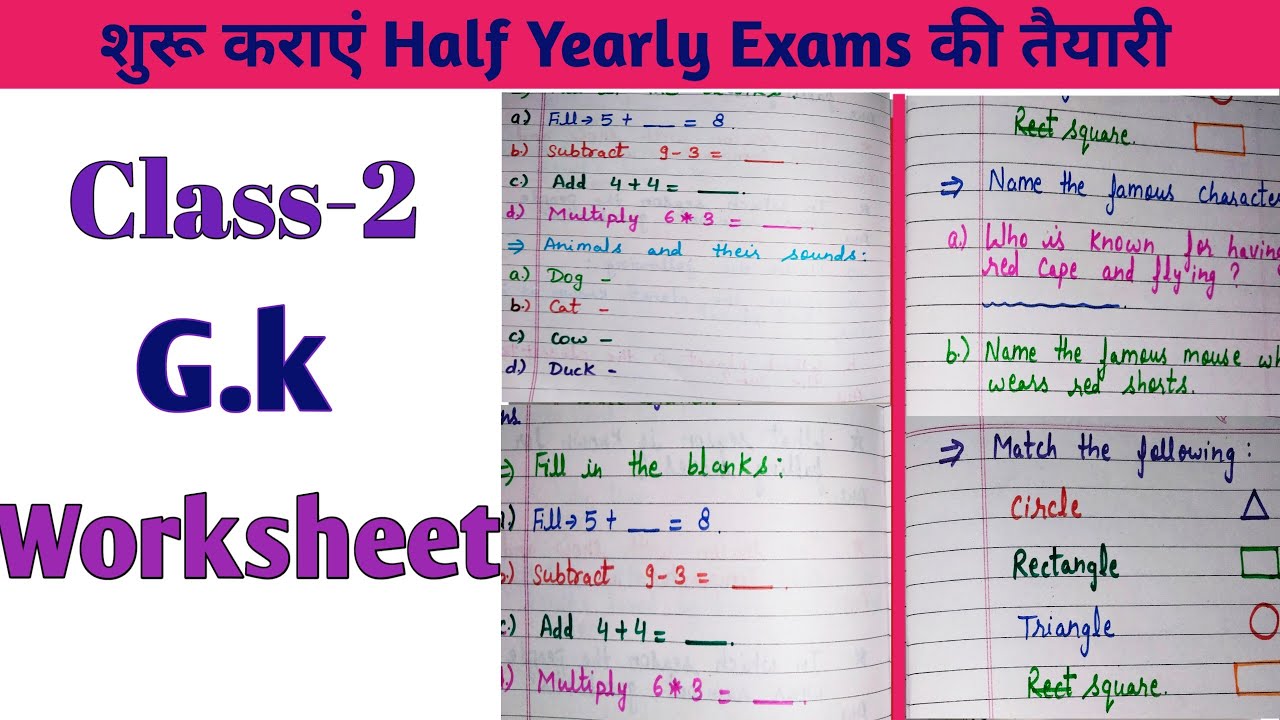 शुरू कराएं Half Yearly Exams की तैयारी
Class-2
G.k
Worksheet
a.) Fill → 5 + __ = 8.
b.) Subtract 9 - 3 = ___
c.) Add 4 + 4 = ___.
d.) Multiply 6 * 3 = ___.
⇒ Animals and their sounds:
a.) Dog -
b.) Cat -
c) Cow -
d.) Duck -
⇒ Fill in the blanks:
) Fill → 5 + __ = 8.
) Subtract 9 - 3 = ___
c.) Add 4 + 4 = ___.
) Multiply 6 * 3 = ___.
Rect square.
⇒ Name the famous characte
a.) Who is known for having
red cape and flying?
b.) Name the famous mouse wh
wears red shorts.
⇒ Match the following:
Circle
Rectangle
Triangle
Rect square.